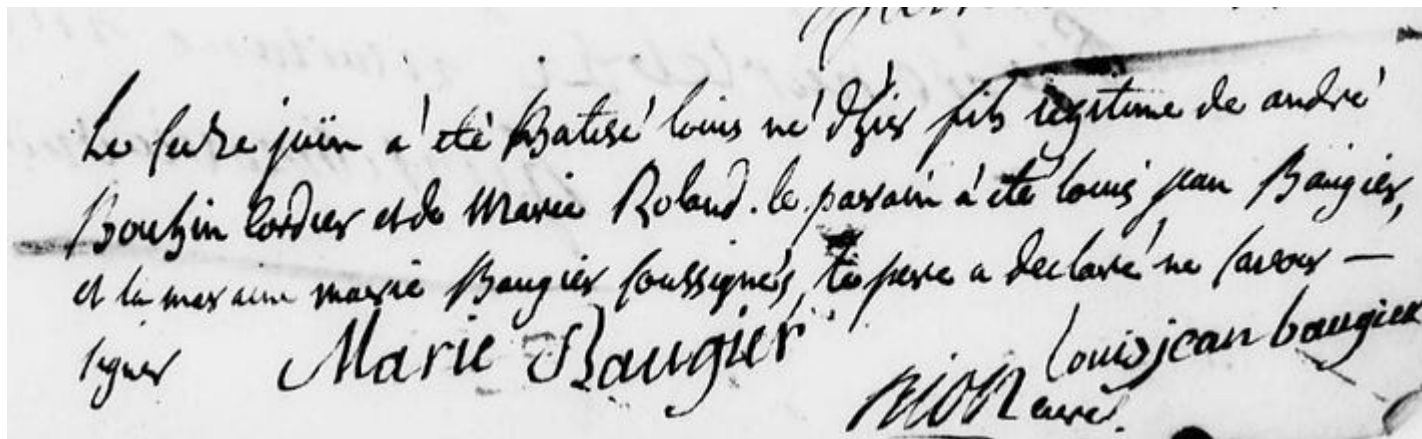 Le seize juin a été Batisé louis né d'hier fils legitime de andré
Bouhin Cordier et de Marie Roland. le parain à eté louis jean Baugier,
et la maraine marie Baugier soussignés, le pere a declaré ne savoir —
signer Marie Baugier louis jean baugier
curé.